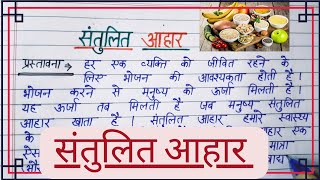 संतुलित आहार
प्रस्तावना → हर एक व्यक्ति को जीवित रहने के
लिए भोजन की आवश्यकता होती है ।
भोजन करने से मनुष्य को ऊर्जा मिलती है ।
यह ऊर्जा तब मिलती है जब मनुष्य संतुलित
आहार खाता है । संतुलित आहार हमारे स्वास्थ्य
के आहार एक
मात्रा
संतुलित आहार